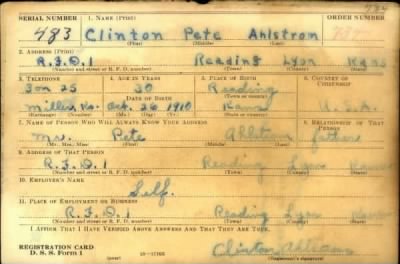 784
SERIAL NUMBER 1. NAME (Print) ORDER NUMBER
483 Clinton Pete Ahlstrom 784
(First) (Middle) (Last)
2. ADDRESS (Print)
R.F.D.1 Reading Lyon Kans
(Number and street or R. F. D. number) (Town) (County) (State)
3. TELEPHONE 4. AGE IN YEARS 5. PLACE OF BIRTH 6. COUNTRY OF CITIZENSHIP
3 on 25 30 Reading
DATE OF BIRTH (Town or county)
Miller, Ks. Oct. 26 1910 Kans U.S.A.
(Exchange) (Number) (Mo.) (Day) (Yr.) (State or country)
7. NAME OF PERSON WHO WILL ALWAYS KNOW YOUR ADDRESS 8. RELATIONSHIP OF THAT PERSON
Mr. Pete Ahlstrom father
(Mr., Mrs., Miss) (First) (Middle) (Last)
9. ADDRESS OF THAT PERSON
R.F.D.1 Reading Lyon Kansas
(Number and street or R. F. D. number) (Town) (County) (State)
10. EMPLOYER'S NAME
Self.
11. PLACE OF EMPLOYMENT OR BUSINESS
R.F.D.1 Reading Lyon Kansas
(Number and street or R. F. D. number) (Town) (County) (State)
I AFFIRM THAT I HAVE VERIFIED ABOVE ANSWERS AND THAT THEY ARE TRUE.
REGISTRATION CARD
D. S. S. Form 1 (over) Clinton Ahlstrom
(Registrant's signature)